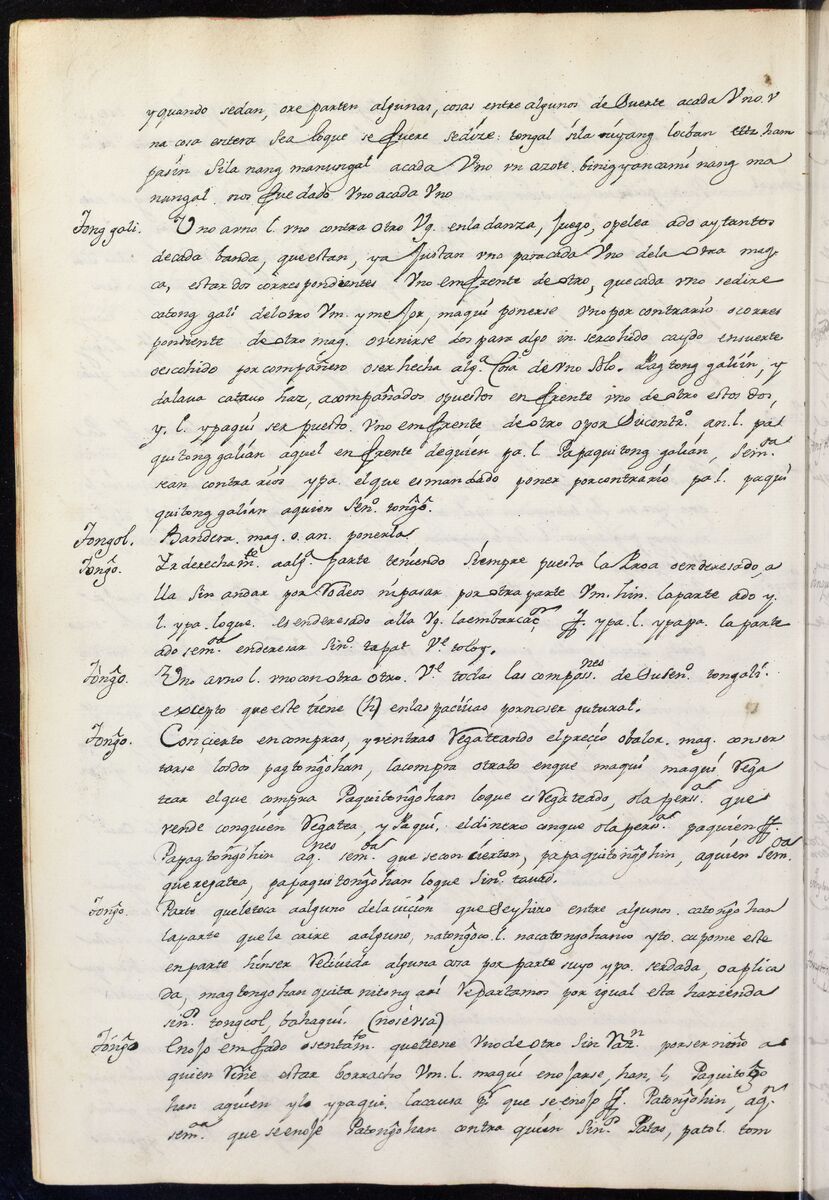 y quando sedan, ore parten algunas, cosas entre algunos de Suerte acada Vno. v
na cosa entera sea loque se fuere sedize: tongal sila níyang locban ham
pasin Sila nang manungal acada Vno vn azote. binigyancami nang ma
nungal. nos fue dado Vno acada Vno
Tong gali. Vno avno l. vno contra otro Vg. enla danza, juego, opelea ado ay tantos
decada banda, que estan, y a Justan vno paracada Vno dela otra mag.
ca, estar dos correspondientes Vno emfrente de otro, que cada vno sedize
catong gali del otro Vm. y mejor, maqui ponerse Vno por contrario o corres
pondiente de otro mag. o venirse dos para algo in. ser cohido caydo ensuerte
oescohido por compañero o ser hecha alg.ª Cosa de vno solo. Pag tong galiin, y
dalaua catauo haz, acompañados opuestos en frente vno de otro estos dos,
y. l. ypaqui ser puesto. Vno emfrente de otro opor Sucontr.º an. l. pa
qui tong galian aquel en frente dequien pa. l. Papaqui tong galian, sem.sa
sean contrarios ypa. el que es mandado poner porcontrario pa l. paqui
qui tong galian aquien Sin.º tongo.
Tongol. Bandera. mag. o. an. ponerla
Tongo. Ir derecham.te aalg.ª parte teniendo Siempre puesta la Proa o enderesado, a
lla sin andar por Rodeos nipasar por otra parte Vm. hin. laparte ado y.
l. ypa. loque. es enderesado alla Vg. laembarcaç.on ff. ypa. l. ypapa. la parte
ado sem.sa enderesar Sin.º tapat V.e toloy.
Tongo. Vno avno l. vno con otra otro. V.e todas las composs.nes de Susen.º tongali.
excepto que este tiene (h) enlas pacivas por no ser gutural.
Tongo. Concierto en compras, y ventras Regateando el precio o balor. mag. conser
tarse losdos pag tongohan, lacompra otrato enque maqui maqui Rega
tear el que compra Paquitongohan loque es Regateado, ola pers.a que
vende conquien Regatea, y Paqui. eldinero conque ola pers.a paquien ff.
Papag tongohin aq.nes sem.sa que seconcierten, papaquitongohin, aquien sem.sa
queregatea, papaquitongohan loque Sin.º tauad.
Tongo. Parte queletoca aalguno dela que Seyhizo entre algunos. catongohan
laparte que le caire aalguno, natongoco. l. nacatongohanco yto. cupome este
enparte hinser Reciuida alguna cosa por parte suyo ypa. serdada, oaplica
da, magtongohan quita nitong ari Repartamos por igual esta hazienda
sin.º tongcol, bahagui. (nosevsa)
Tongo Enojo emfado osentam.to quetiene Vno de otro Sin Raz.n por ser niño a
quien Riñe estar borracho Vm. l. maqui enojarse, han, l. Paquitongo
han aquien ylo ypaqui. lacausa que seenojo ff. Patongohin, aq.n
sem.sa que seenoje Patongohan contra quien Sin.º Patao, patol. tom